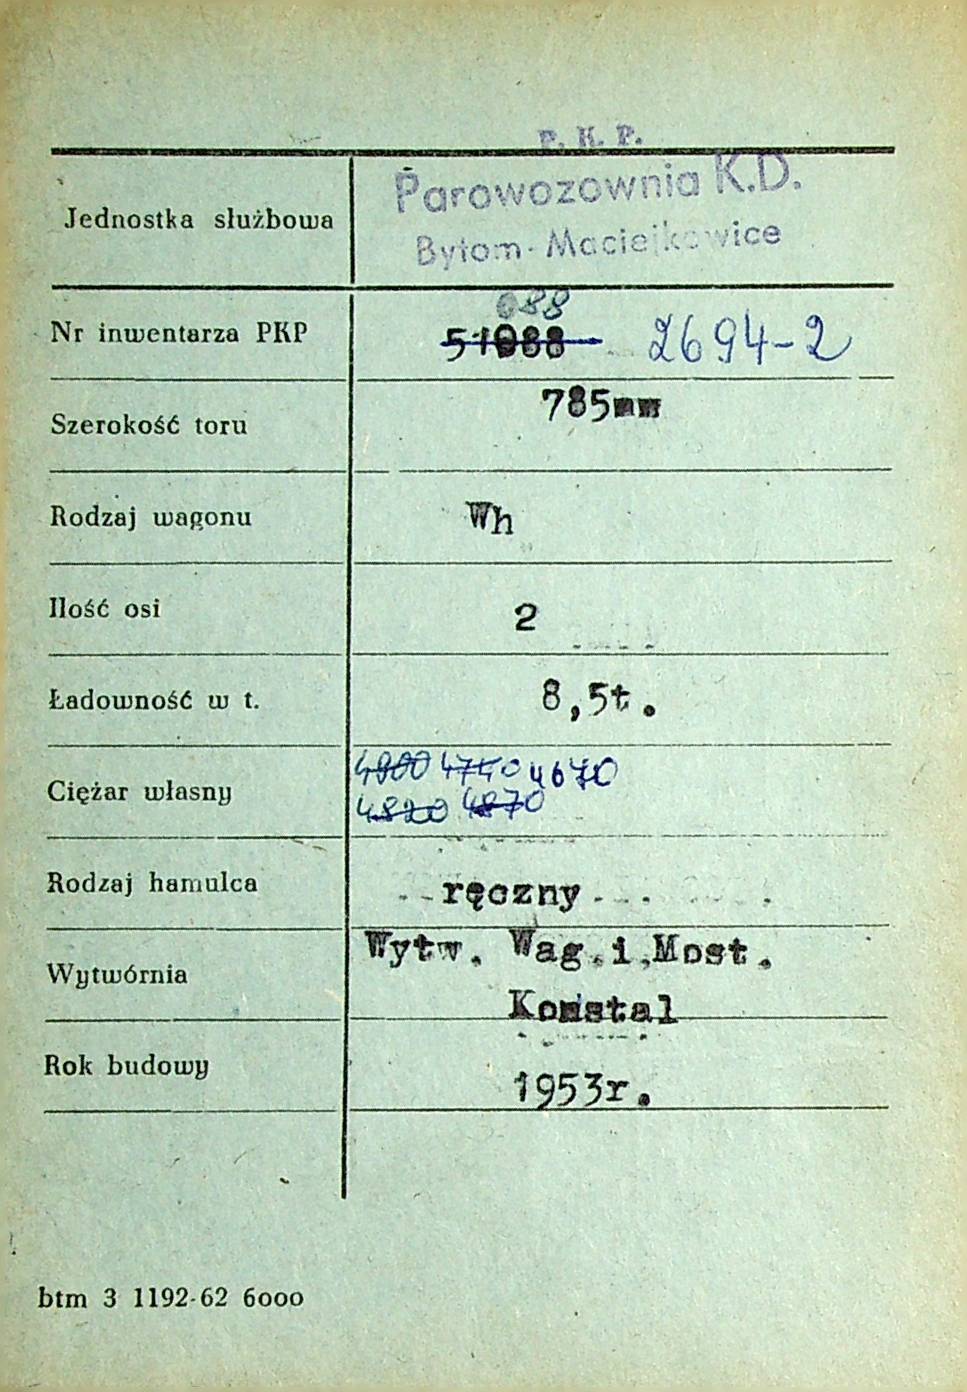 P. K. P.
Parowozownia K.D.
Jednostka służbowa
Bytom-Maciejkowice
088
Nr inwentarza PKP 51088 2694-2
785mm
Szerokość toru
Rodzaj wagonu Wh
Ilość osi 2
Ładowność w t. 8,5t.
4800 4740 4670
Ciężar własny
4820 4870
Rodzaj hamulca ręczny
Wytw. Wag.i.Most.
Wytwórnia
Konstal
Rok budowy
1953r.
btm 3 1192-62 6000